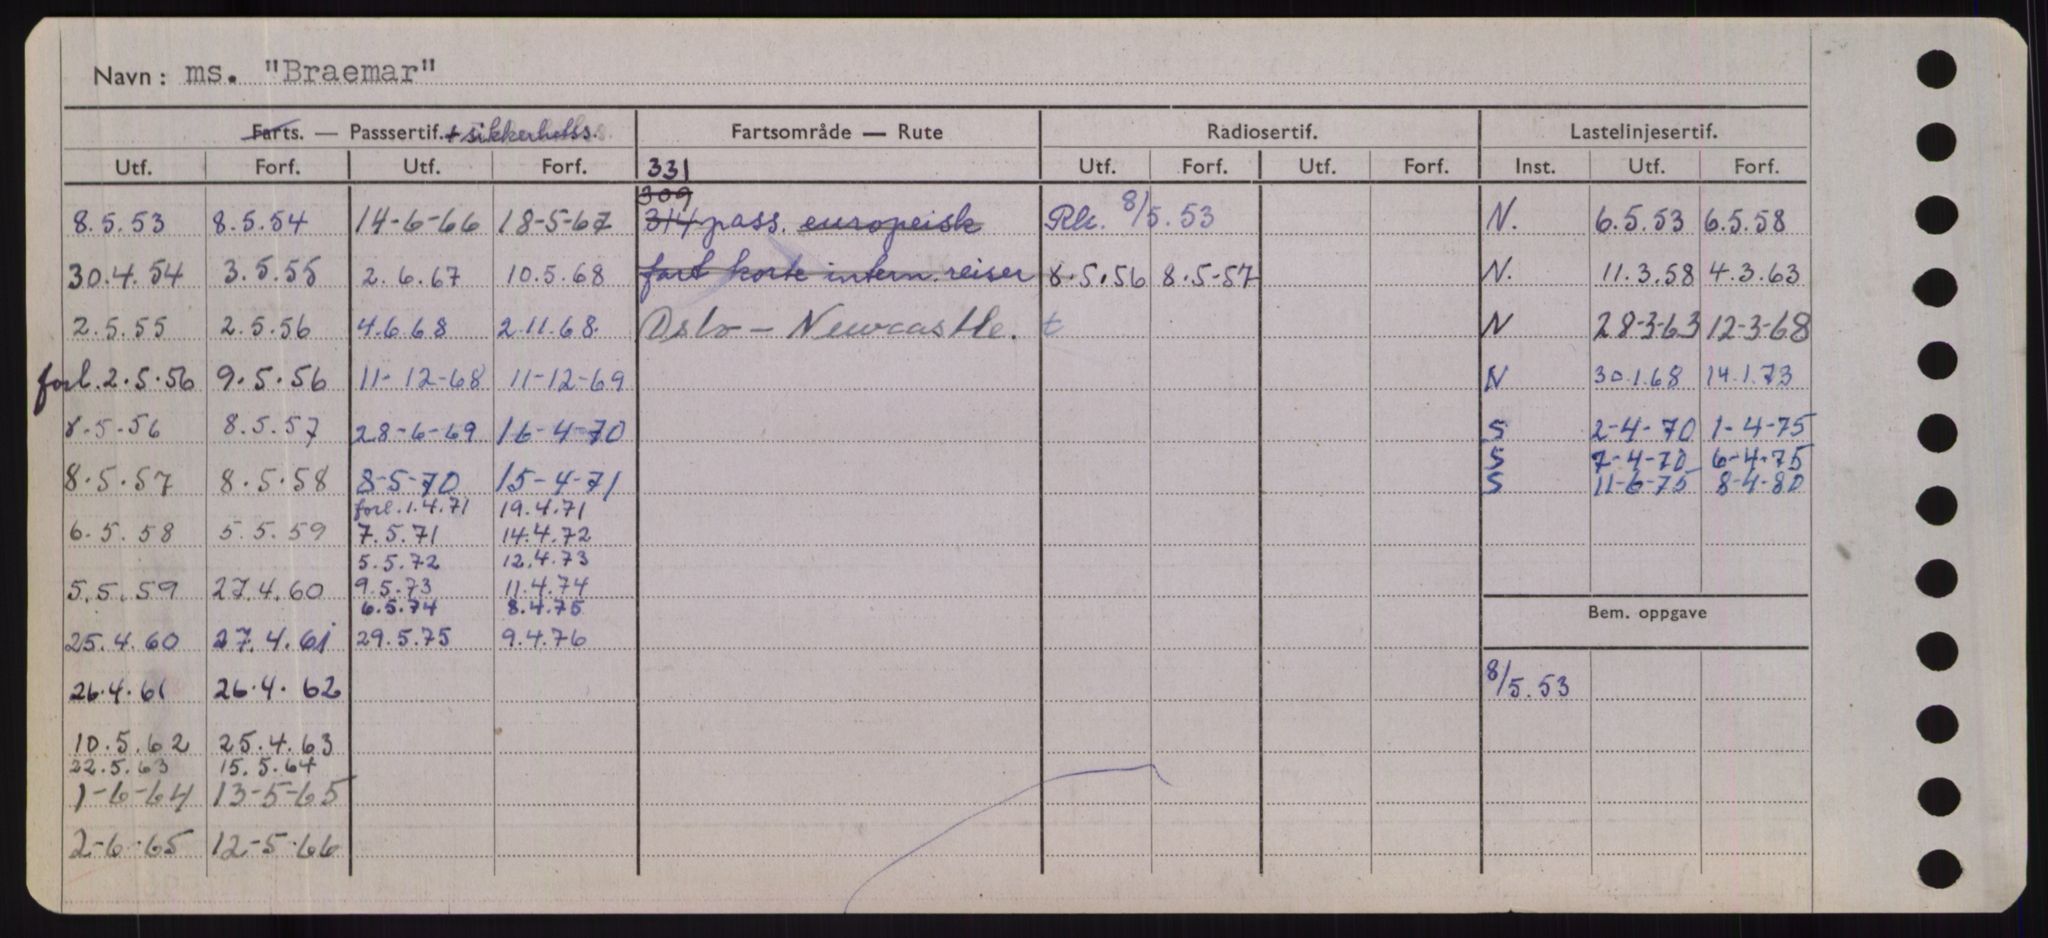 Navn: ms. "Braemar"
Farts. — Passsertif. + sikkerhets. Fartsområde — Rute Radiosertif. Lastelinjesertif.
Utf. Forf. Utf. Forf. 331 Utf. Forf. Utf. Forf. Inst. Utf. Forf.
309
8.5.53 8.5.54 14-6-66 18-5-67 314 pass. europeisk Rk. 8/5.53 N. 6.5.53 6.5.58
30.4.54 3.5.55 2.6.67 10.5.68 fart korte intern. reiser 8.5.56 8.5-57 N. 11.3.58 4.3.63
2.5.55 2.5.56 4.6.68 2.11.68. Oslo - Newcastle. t N 28-3-63 12-3-68
forl. 2.5.56 9.5.56 11-12-68 11-12-69 N 30.1.68 14.1.73
8.5.56 8.5.57 28-6-69 16-4-70 S 2-4-70 1-4-75
S 7-4-70 6-4-75
8.5.57 8.5.58 8-5-70 15-4-71 S 11-6-75 8-4-80
forl. 1.4.71 19.4.71
6.5.58 5.5.59 7.5.71 14.4.72
5.5.72 12.4.73
5.5.59 27.4.60 9.5.73 11.4.74
6.5.74 8.4.75 Bem. oppgave
25.4.60 27.4.61 29.5.75 9.4.76
26.4.61 26.4.62 8/5.53
10.5.62 25.4.63
22.5.63 15.5.64
1-6-64 13-5-65
2-6-65 12-5-66